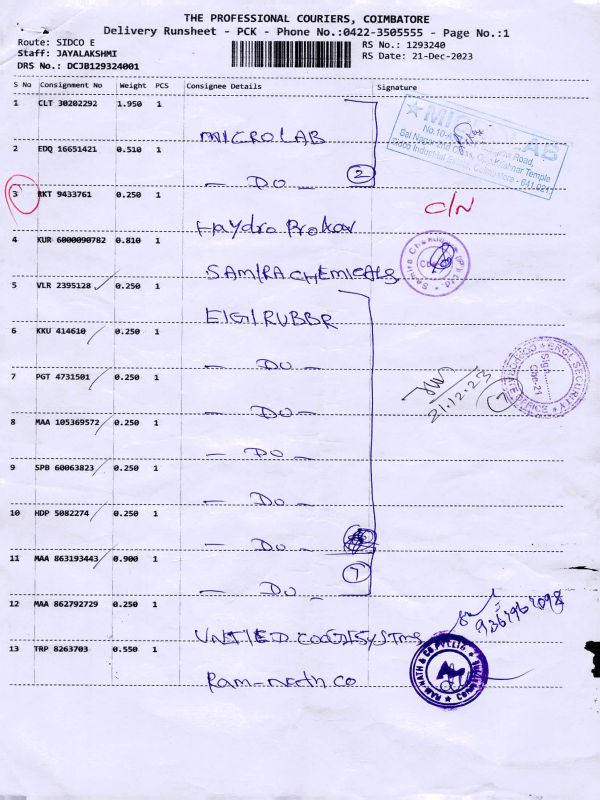 THE PROFESSIONAL COURIERS, COIMBATORE
Delivery Runsheet - PCK - Phone No.:0422-3505555 - Page No.:1
Route: SIDCO E
Staff: JAYALAKSHMI
DRS No.: DCJB129324001
RS No.: 1293240
RS Date: 21-Dec-2023
S No Consignment No Weight PCS Consignee Details Signature
1 CLT 30202292 1.950 1
MICROLAB
MICROLAB
2 EDQ 16651421 0.510 1
- DO - 2
3 RKT 9433761 0.250 1
C/N
Haydro Prokav
4 KUR 6000090782 0.810 1
SAMIRA CHEMICALS
5 VLR 2395128 0.250 1
EIGI RUBBR
6 KKU 414610 0.250 1
- DO -
7 PGT 4731501 0.250 1
21.12.23
7
- DO -
8 MAA 105369572 0.250 1
- DO -
9 SPB 60063823 0.250 1
- DO -
10 HDP 5082274 0.250 1
- DO -
11 MAA 863193443 0.900 1
7
- DO -
12 MAA 862792729 0.250 1
UNITIED COOJISYSTMS
13 TRP 8263703 0.550 1
Ram-nath co